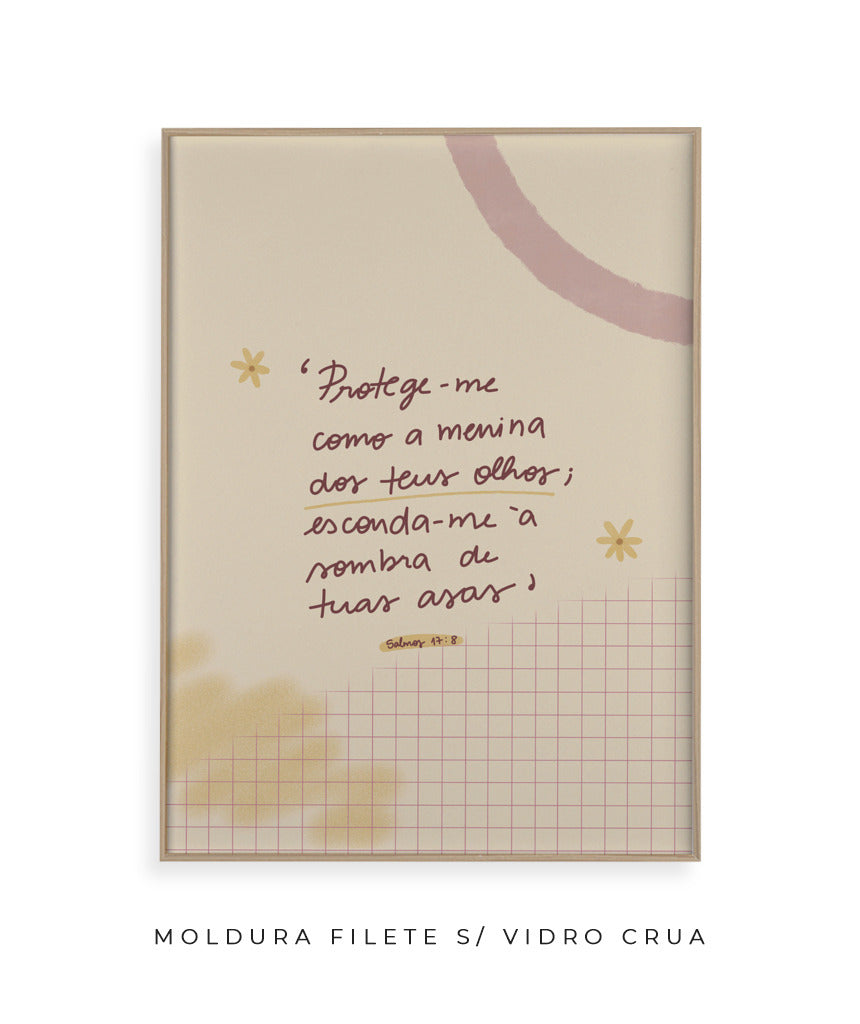 ‘Protege-me
como a menina
dos teus olhos;
esconda-me à
sombra de
tuas asas’
Salmos 17:8
MOLDURA FILETE S/ VIDRO CRUA